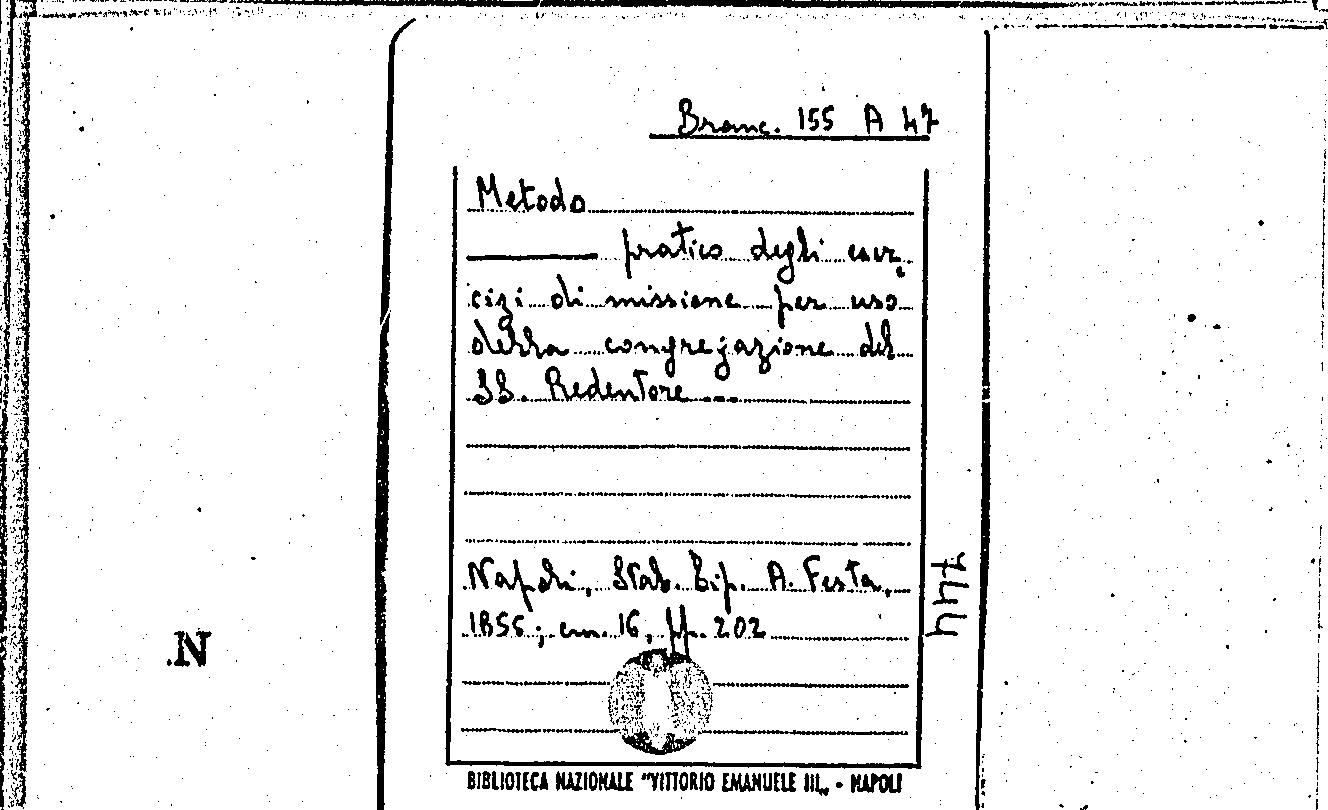 Branc. 155 A 47
Metodo
pratico degli eser
cizi di missione per uso
della congregazione del
SS. Redentore ...
Napoli, Stab. Tip. A. Festa,
1855; cm. 16, pp. 202
744
.N
BIBLIOTECA NAZIONALE "VITTORIO EMANUELE III„ - NAPOLI